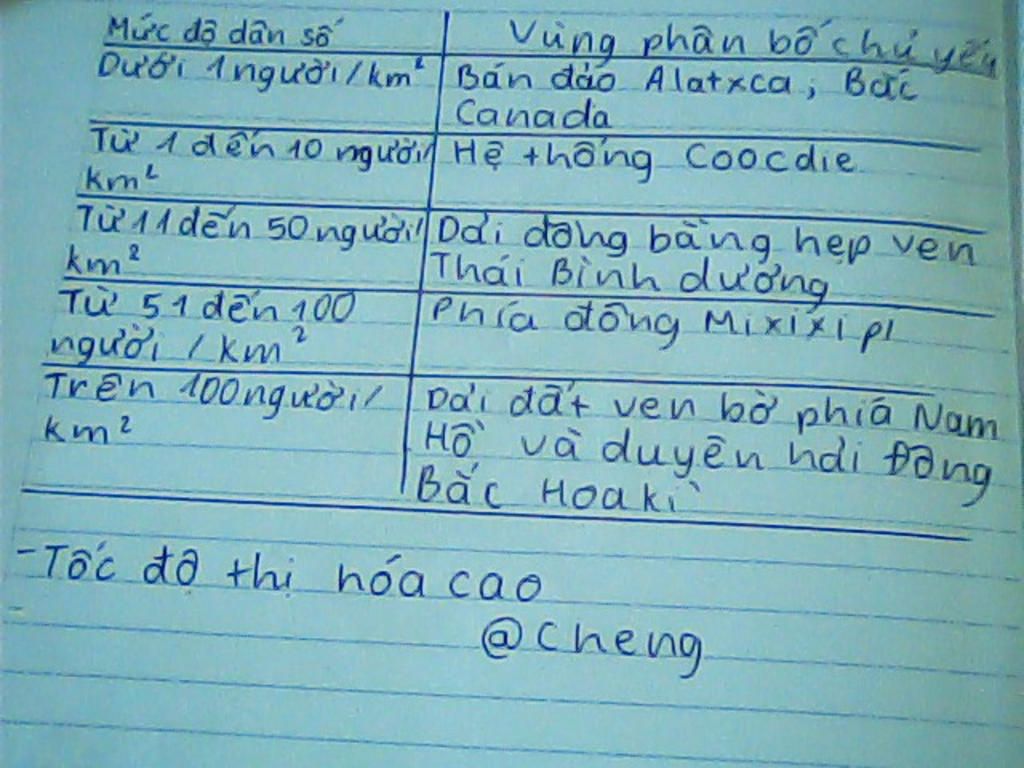 Mức độ dân số
Vùng phân bố chủ yếu
Dưới 1 người/km²
Bán đảo Alatxca; Bắc
Canada
Từ 1 đến 10 người/
km²
Hệ thống Coocdie
Từ 11 đến 50 người/
km²
Dải đồng bằng hẹp ven
Thái Bình dương
Từ 51 đến 100
người / km²
Phía đông Mixixipi
Trên 100 người/
km²
Dải đất ven bờ phía Nam
Hồ và duyên hải Đông
Bắc Hoa kì
- Tốc độ thị hóa cao
@cheng